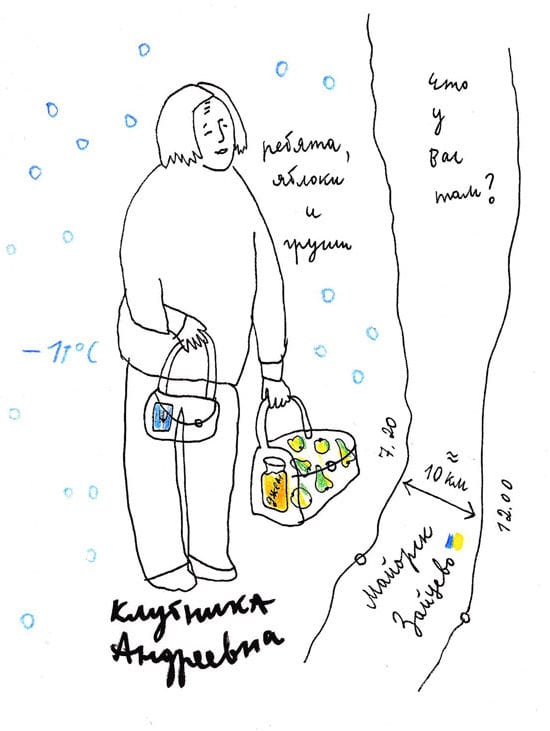 что
у
вас
там?
ребята,
яблоки
и
груши
-11°C
7.20
≈
10 км
12.00
Майорск
Зайцево
Клубника
Андреевна